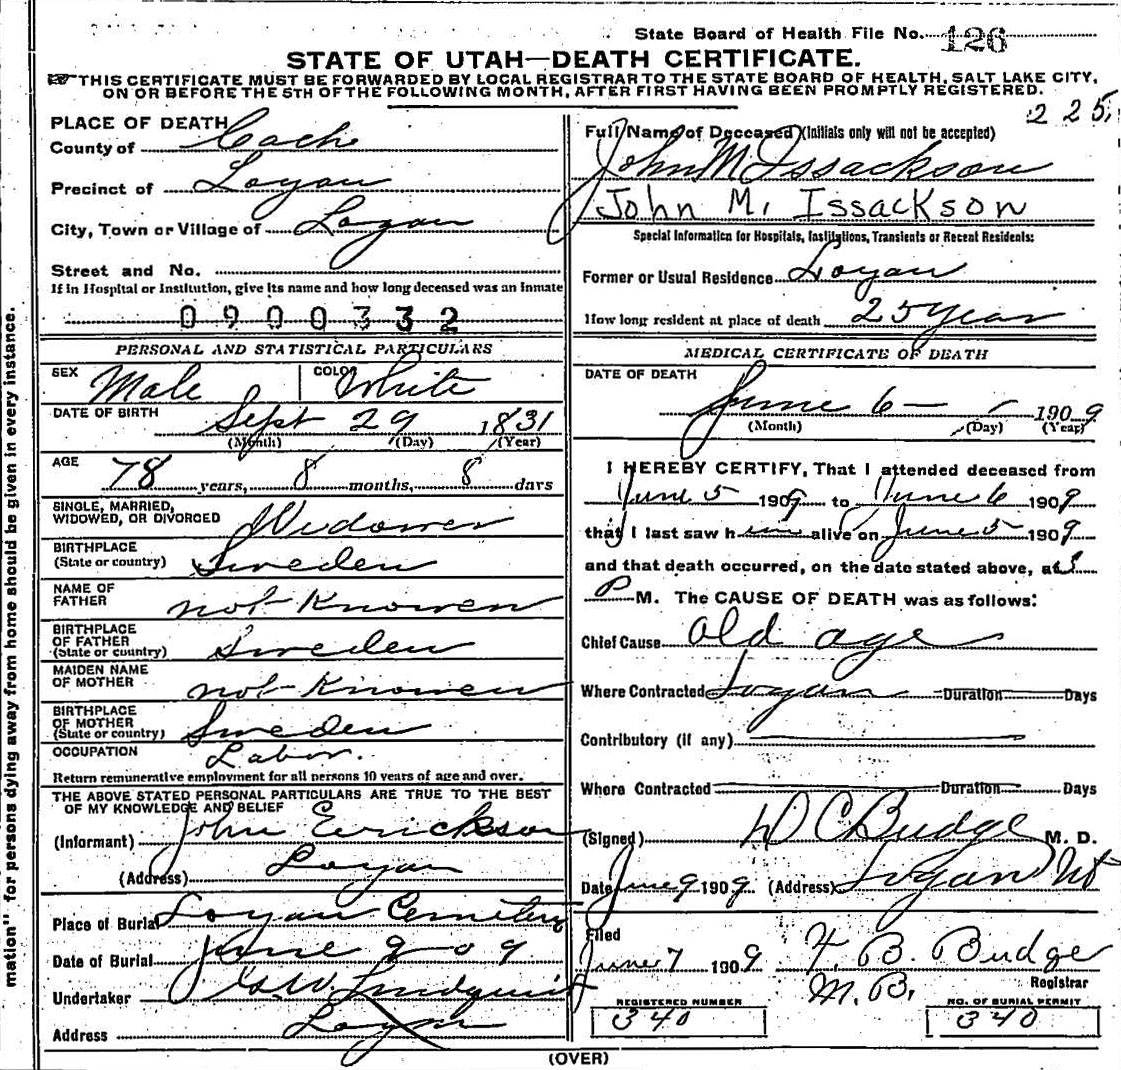 State Board of Health File No. 126
STATE OF UTAH—DEATH CERTIFICATE.
THIS CERTIFICATE MUST BE FORWARDED BY LOCAL REGISTRAR TO THE STATE BOARD OF HEALTH, SALT LAKE CITY,
ON OR BEFORE THE 5TH OF THE FOLLOWING MONTH, AFTER FIRST HAVING BEEN PROMPTLY REGISTERED.
225
PLACE OF DEATH
County of Cache
Precinct of Logan
City, Town or Village of Logan
Street and No.
If in Hospital or Institution, give its name and how long deceased was an Inmate
0900332
PERSONAL AND STATISTICAL PARTICULARS
SEX Male COLOR White
DATE OF BIRTH Sept 29 1831
(Month) (Day) (Year)
AGE 78 years, 8 months, 8 days
SINGLE, MARRIED,
WIDOWED, OR DIVORCED Widower
BIRTHPLACE
(State or country) Sweden
NAME OF
FATHER not Knowen
BIRTHPLACE
OF FATHER
(State or country) Sweden
MAIDEN NAME
OF MOTHER not Knowen
BIRTHPLACE
OF MOTHER
(State or country) Sweden
OCCUPATION Labor.
Return remunerative employment for all persons 10 years of age and over.
THE ABOVE STATED PERSONAL PARTICULARS ARE TRUE TO THE BEST
OF MY KNOWLEDGE AND BELIEF
(Informant) John Erickson
(Address) Logan
Place of Burial Logan Cemetery
Date of Burial June 9-09
Undertaker Lindquist
Address Logan
Full Name of Deceased (Initials only will not be accepted)
John M Issackson
John M. Issackson
Special Information for Hospitals, Institutions, Transients or Recent Residents:
Former or Usual Residence Logan
How long resident at place of death 25 year
MEDICAL CERTIFICATE OF DEATH
DATE OF DEATH
June 6 1909
(Month) (Day) (Year)
I HEREBY CERTIFY, That I attended deceased from
June 5 1909 to June 6 1909
that I last saw him alive on June 5 1909
and that death occurred, on the date stated above, at
P M. The CAUSE OF DEATH was as follows:
Chief Cause old age
Where Contracted Logan Duration Days
Contributory (if any)
Where Contracted Duration Days
(Signed) D C Budge M. D.
Date June 9 1909 (Address) Logan Ut
Filed
June 7 1909 F. B. Budge
Registrar
M.B.
REGISTERED NUMBER
340
NO. OF BURIAL PERMIT
340
(OVER)
mation" for persons dying away from home should be given in every instance.